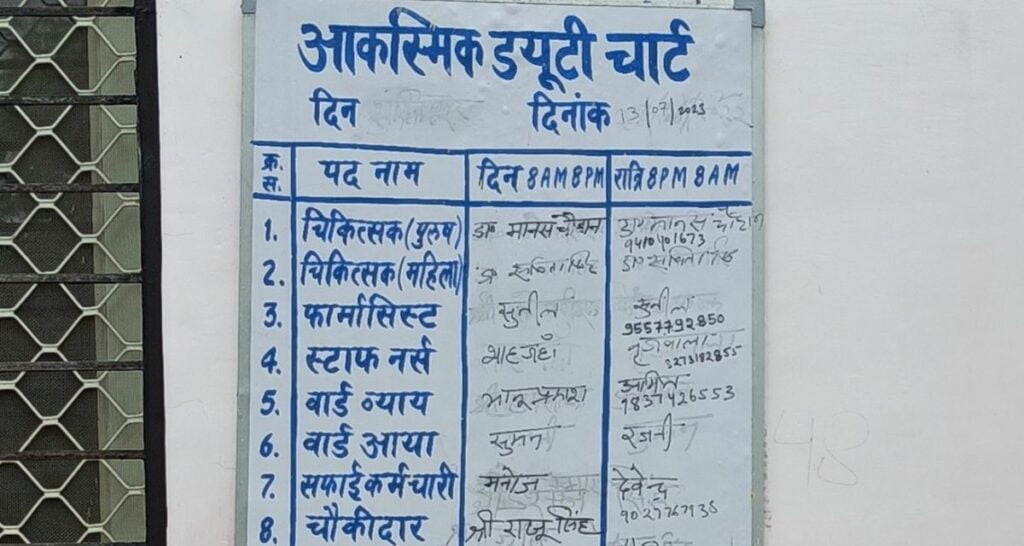 आकस्मिक ड्यूटी चार्ट
दिन दिनांक 13/07/2023
क्र. स. पद नाम दिन 8 AM 8 PM रात्रि 8 PM 8 AM
1. चिकित्सक (पुरुष) डा० मानस चौहान डा० मानस चौहान
9410401673
2. चिकित्सक (महिला) डा०
3. फार्मासिस्ट सुनील सुनील
9557792850
4. स्टाफ नर्स शाहजहाँ
5. वार्ड व्याय भानू प्रकाश
9837426553
6. वार्ड आया सुमन रजनी
7. सफाई कर्मचारी मनोज देवेन्द्र
8. चौकीदार श्री राजू सिंह
48